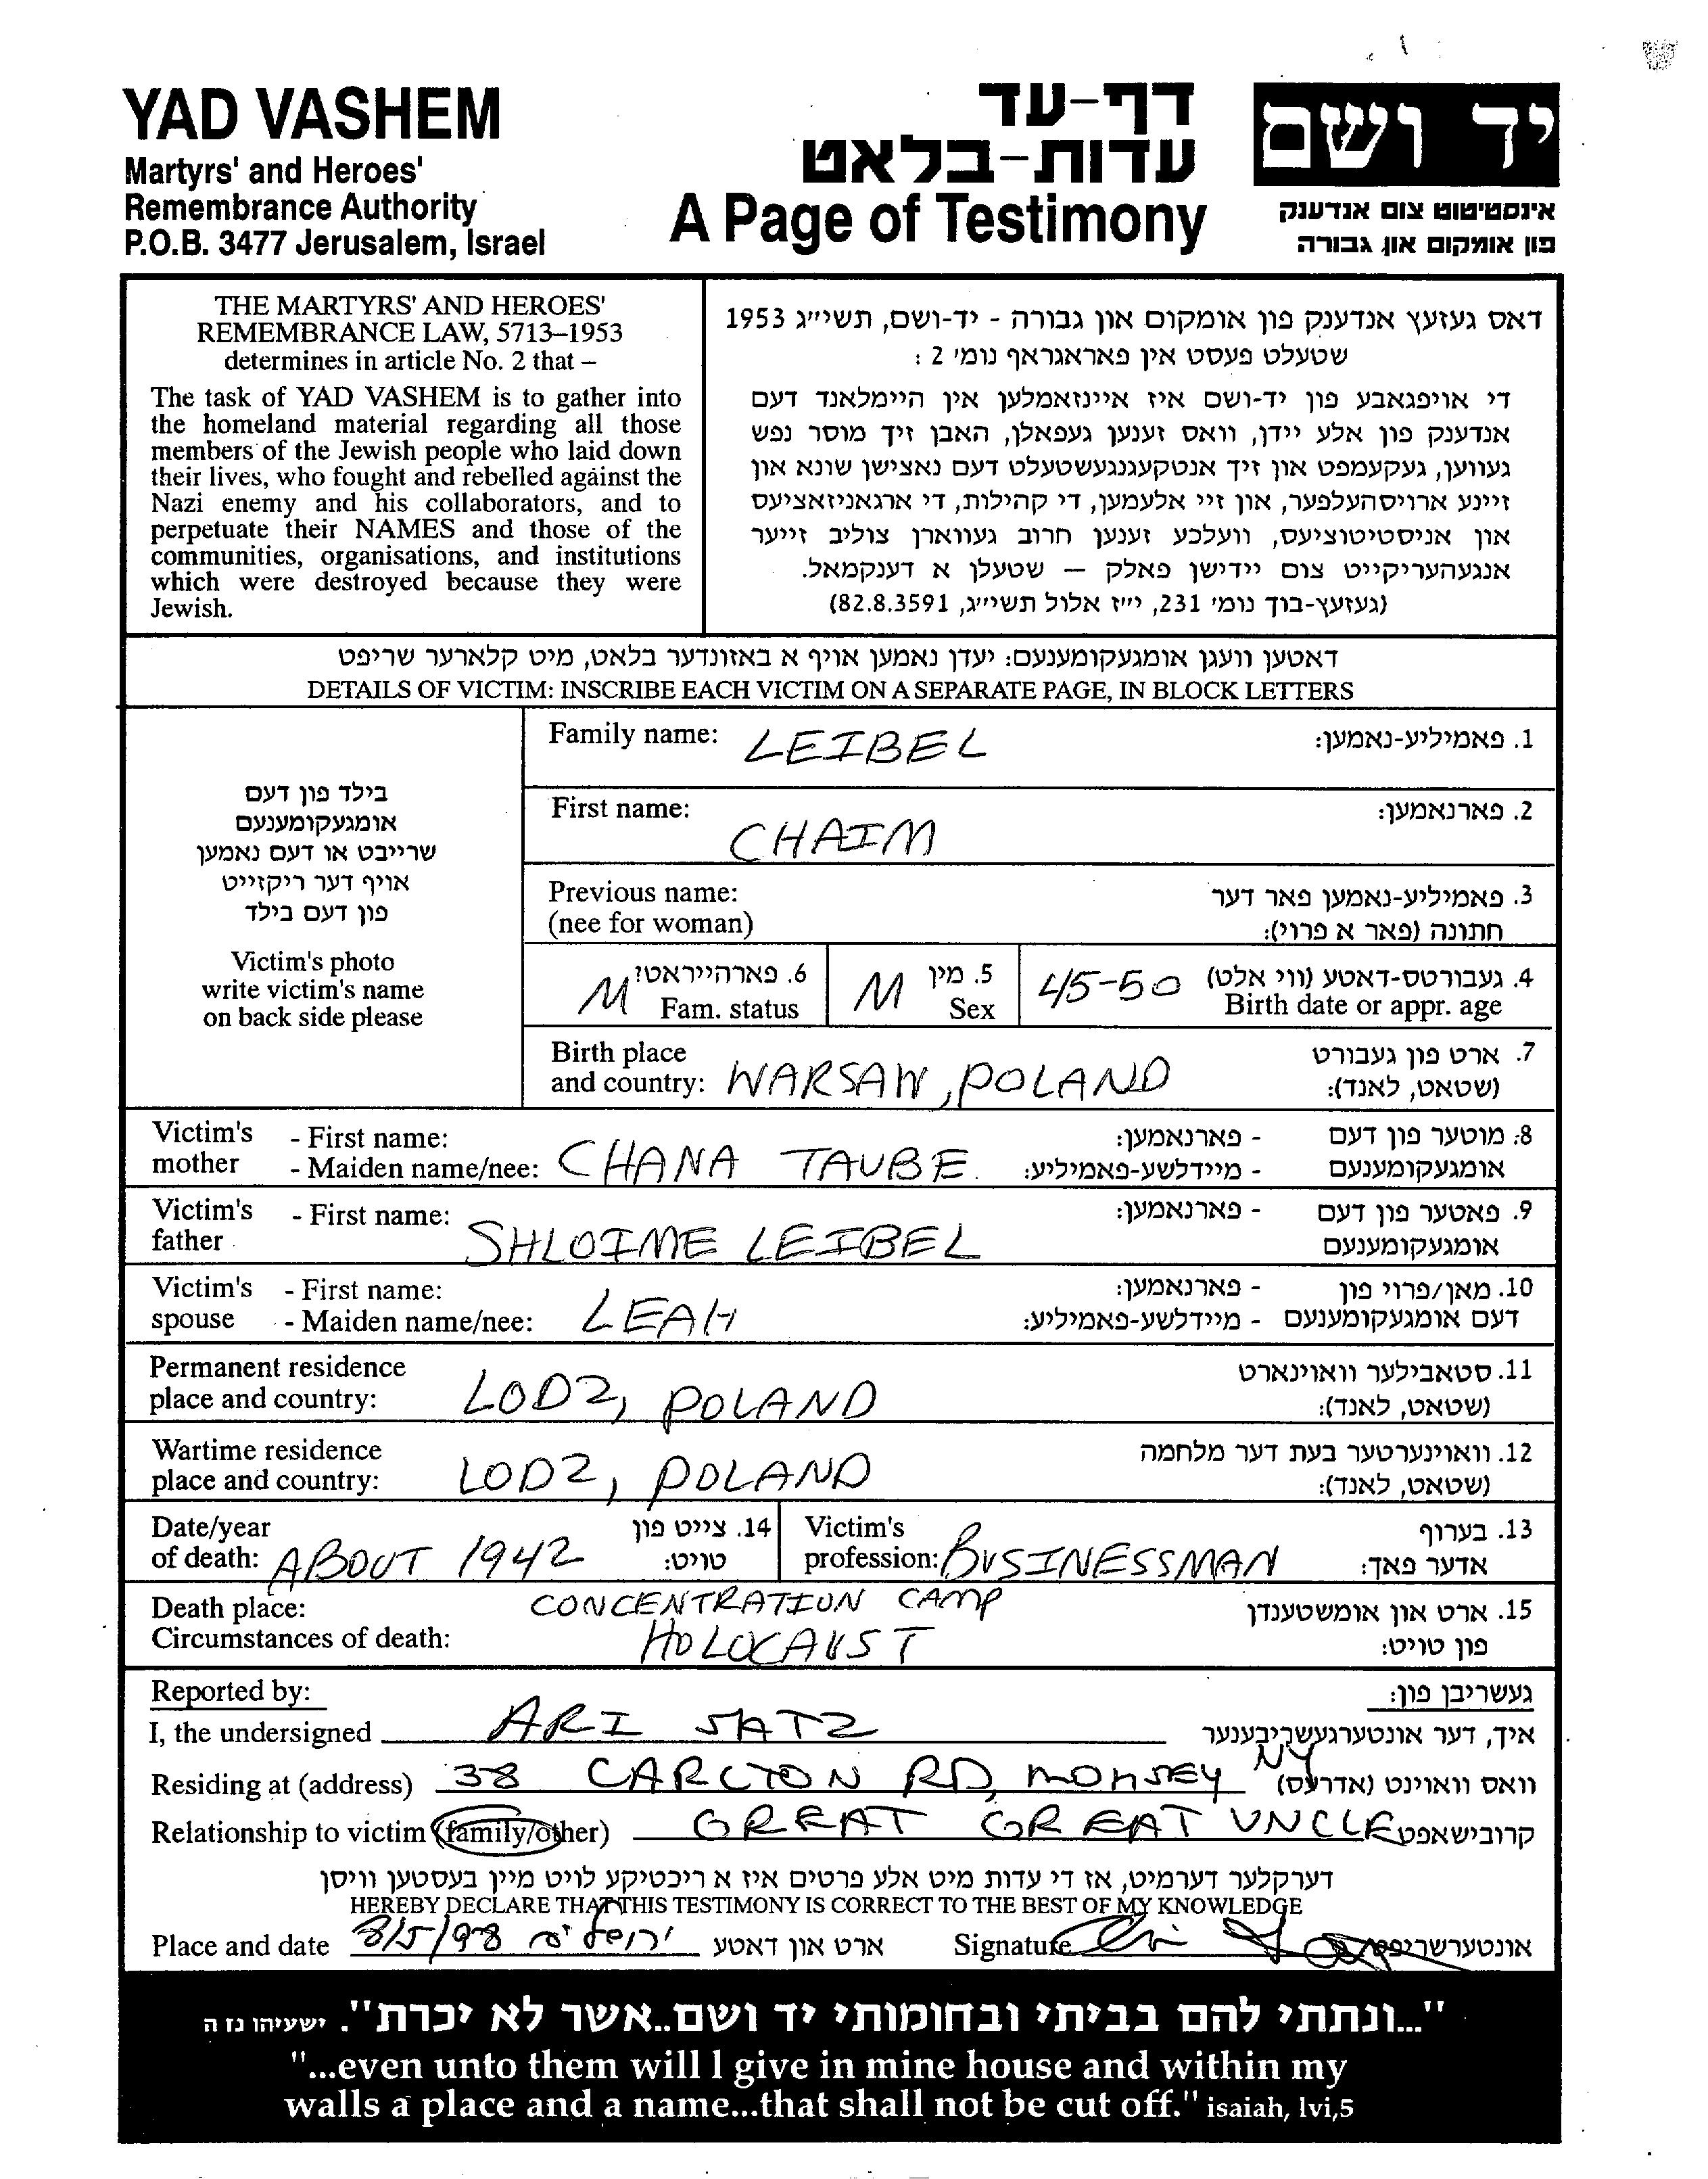 YAD VASHEM
Martyrs' and Heroes'
Remembrance Authority
P.O.B. 3477 Jerusalem, Israel
דף-עד
עדות-בלאט
A Page of Testimony
יד ושם
אינסטיטוט צום אנדענק
פון אומקום און גבורה
THE MARTYRS' AND HEROES'
REMEMBRANCE LAW, 5713–1953
determines in article No. 2 that –
The task of YAD VASHEM is to gather into
the homeland material regarding all those
members of the Jewish people who laid down
their lives, who fought and rebelled against the
Nazi enemy and his collaborators, and to
perpetuate their NAMES and those of the
communities, organisations, and institutions
which were destroyed because they were
Jewish.
דאס געזעץ אנדענק פון אומקום און גבורה - יד-ושם, תשי״ג 1953
שטעלט פעסט אין פאראגראף נומ׳ 2 :
די אויפגאבע פון יד-ושם איז איינזאמלען אין היימלאנד דעם
אנדענק פון אלע יידן, וואס זענען געפאלן, האבן זיך מוסר נפש
געווען, געקעמפט און זיך אנטקעגנגעשטעלט דעם נאצישן שונא און
זיינע ארויסהעלפער, און זיי אלעמען, די קהילות, די ארגאניזאציעס
און אניסטיטוציעס, וועלכע זענען חרוב געווארן צוליב זייער
אנגעהעריקייט צום יידישן פאלק — שטעלן א דענקמאל.
(געזעץ-בוך נומ׳ 231, י״ז אלול תשי״ג, 82.8.3591)
דאטען וועגן אומגעקומענעם: יעדן נאמען אויף א באזונדער בלאט, מיט קלארער שריפט
DETAILS OF VICTIM: INSCRIBE EACH VICTIM ON A SEPARATE PAGE, IN BLOCK LETTERS
בילד פון דעם
אומגעקומענעם
שרייבט או דעם נאמען
אויף דער ריקזייט
פון דעם בילד
Victim's photo
write victim's name
on back side please
Family name: LEIBEL 1. פאמיליע-נאמען:
First name: CHAIM 2. פארנאמען:
Previous name: 3. פאמיליע-נאמען פאר דער
(nee for woman) חתונה (פאר א פרוי):
M 6. פארהייראט? M 5. מין 45-50 4. געבורטס-דאטע (ווי אלט)
Fam. status Sex Birth date or appr. age
Birth place 7. ארט פון געבורט
and country: WARSAW, POLAND (שטאט, לאנד):
Victim's - First name: - פארנאמען: 8. מוטער פון דעם
mother - Maiden name/nee: CHANA TAUBE - מיידלשע-פאמיליע: אומגעקומענעם
Victim's - First name: - פארנאמען: 9. פאטער פון דעם
father SHLOIME LEIBEL אומגעקומענעם
Victim's - First name: - פארנאמען: 10. מאן/פרוי פון
spouse - Maiden name/nee: LEAH - מיידלשע-פאמיליע: דעם אומגעקומענעם
Permanent residence 11. סטאבילער וואוינארט
place and country: LODZ, POLAND (שטאט, לאנד):
Wartime residence 12. וואוינערטער בעת דער מלחמה
place and country: LODZ, POLAND (שטאט, לאנד):
Date/year 14. צייט פון Victim's 13. בערוף
of death: ABOUT 1942 טויט: profession: BUSINESSMAN אדער פאך:
Death place: CONCENTRATION CAMP 15. ארט און אומשטענדן
Circumstances of death: HOLOCAUST פון טויט:
Reported by: געשריבן פון:
I, the undersigned ARI SATZ איך, דער אונטערגעשריבענער
Residing at (address) 38 CARLTON RD, MONSEY NY וואס וואוינט (אדרעס)
Relationship to victim (family/other) GREAT GREAT UNCLE קרובישאפט
דערקלער דערמיט, אז די עדות מיט אלע פרטים איז א ריכטיקע לויט מיין בעסטען וויסן
HEREBY DECLARE THAT THIS TESTIMONY IS CORRECT TO THE BEST OF MY KNOWLEDGE
Place and date 8/5/98 ירושלים ארט און דאטע Signature אונטערשריפט
"...ונתתי להם בביתי ובחומותי יד ושם..אשר לא יכרת". ישעיהו נז ה
"...even unto them will I give in mine house and within my
walls a place and a name...that shall not be cut off." isaiah, lvi,5